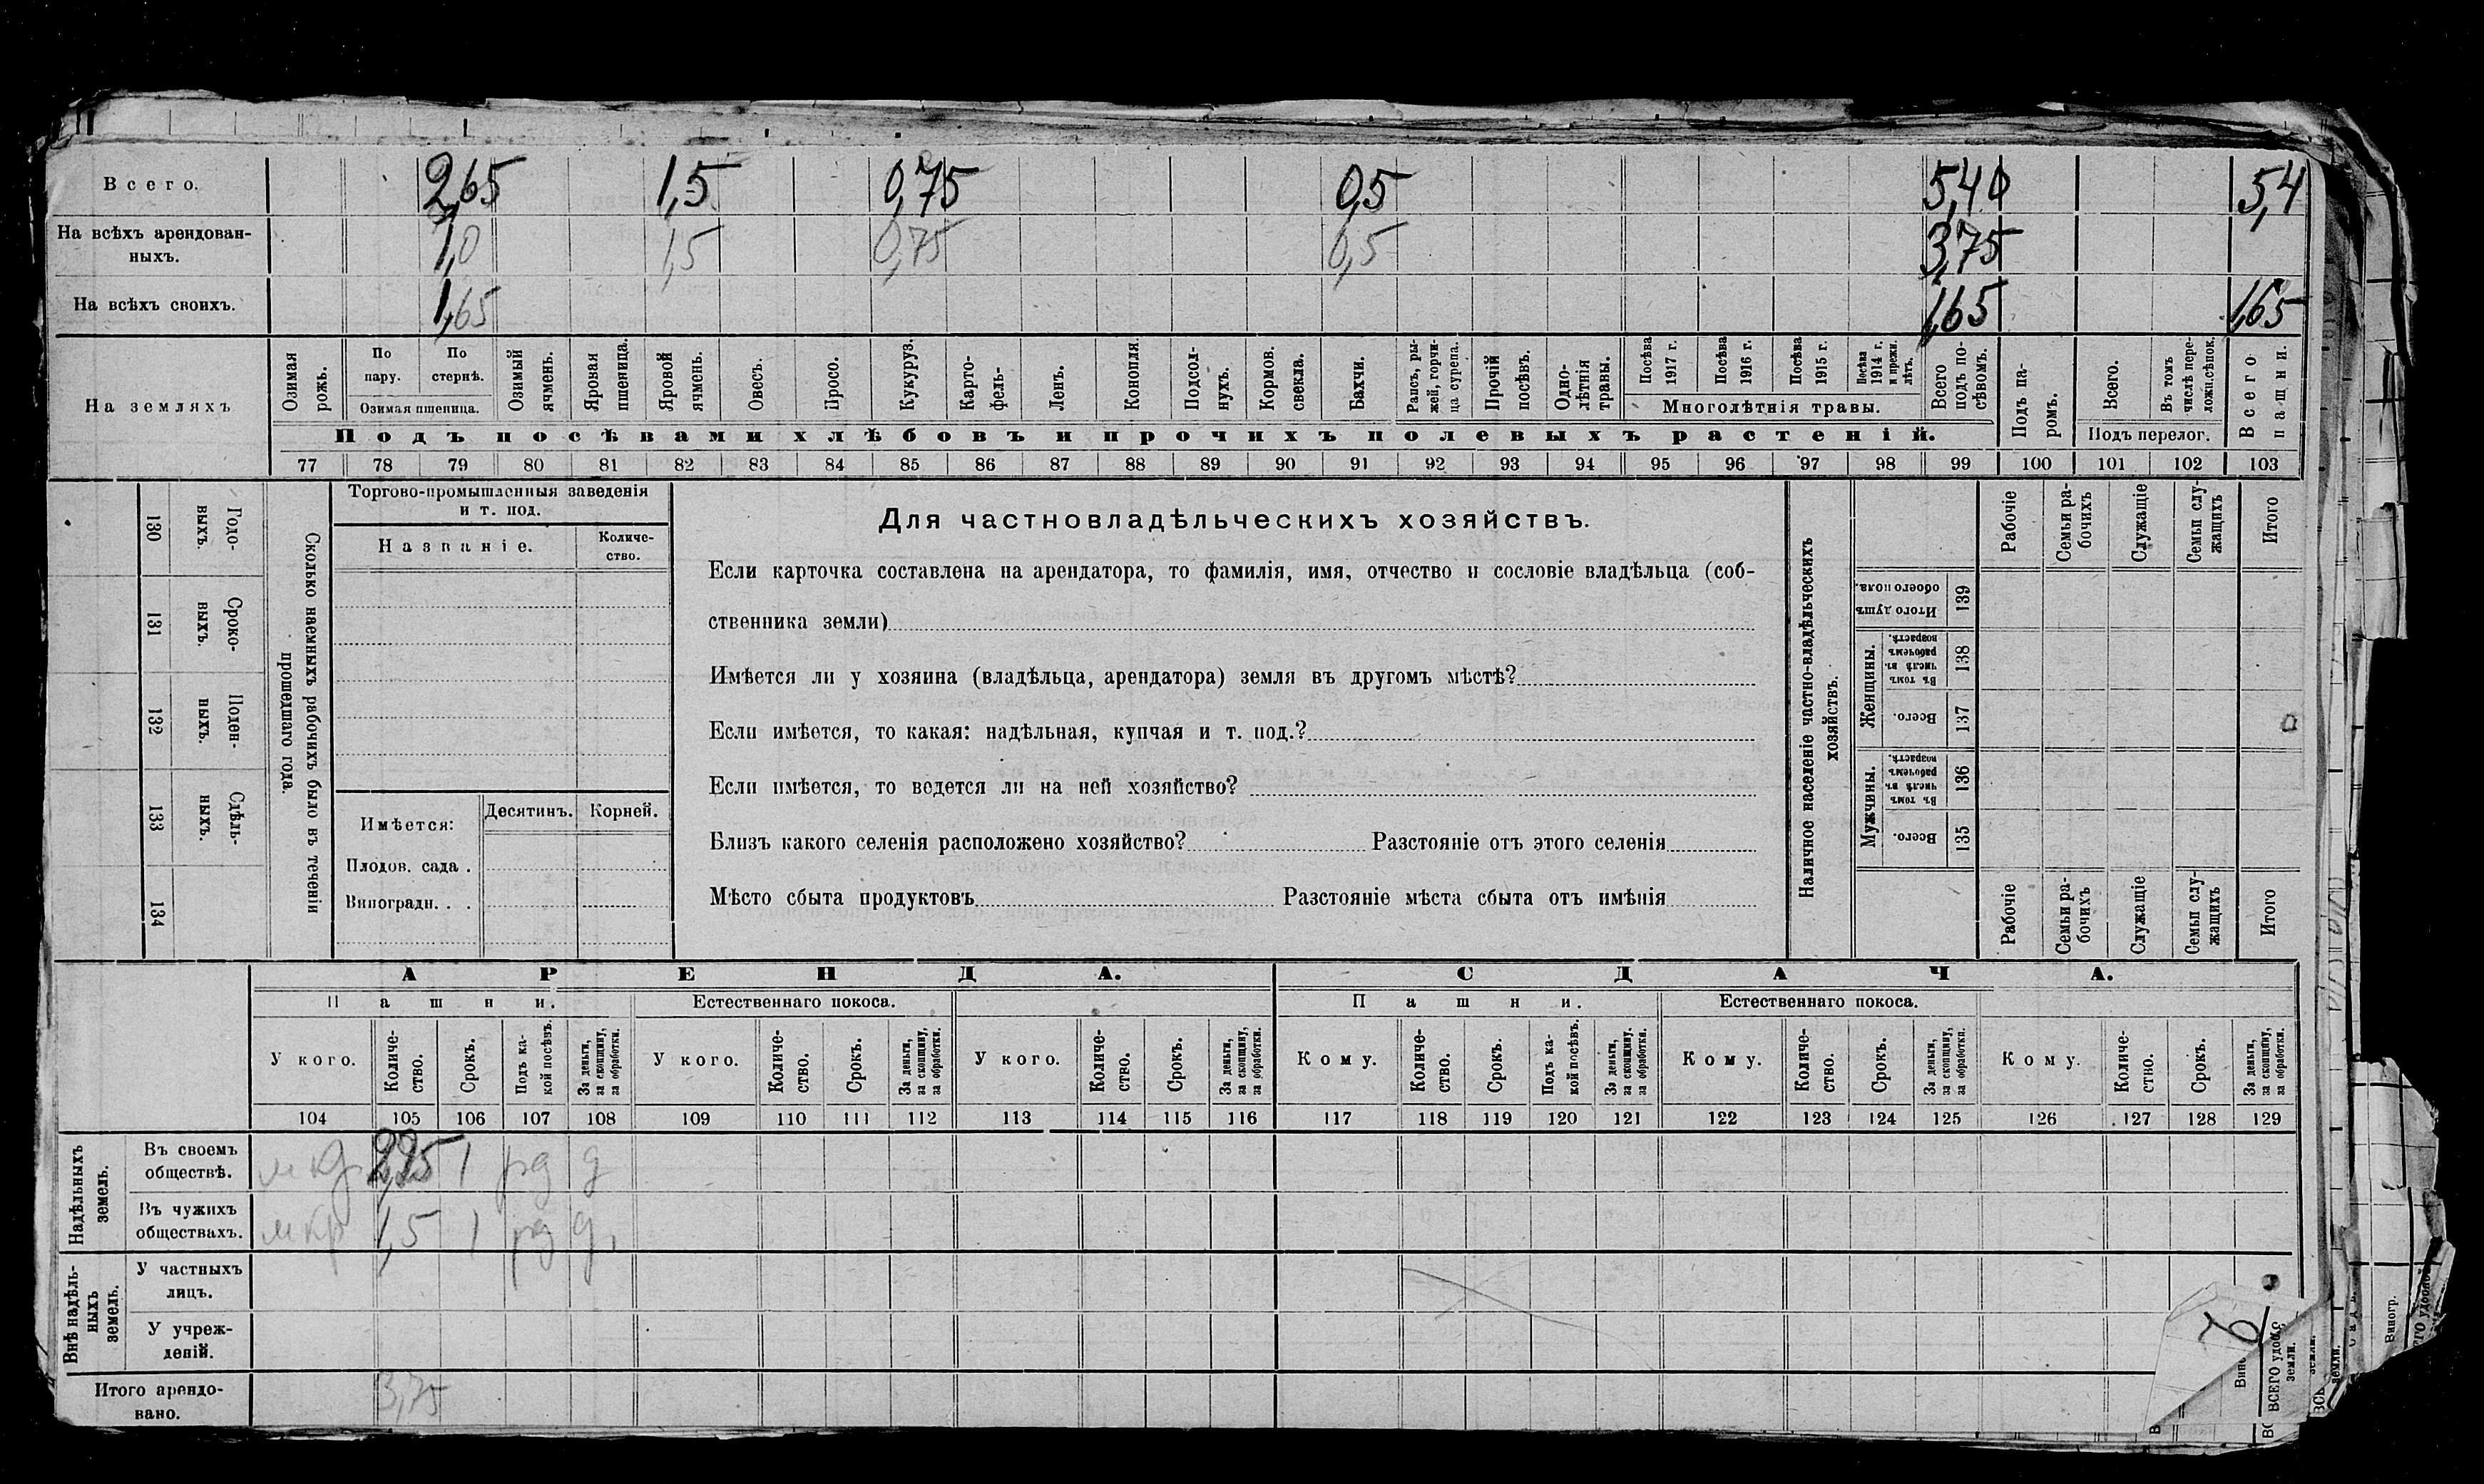 Всего. 2,65 1,5 0,75 0,5 5,40 5,4
На всѣхъ арендован-
ныхъ. 1,0 1,5 0,75 0,5 3,75
На всѣхъ своихъ. 1,65 1,65 1,65
На земляхъ
Озимая рожь.
По пару.
По стернѣ.
Озимая пшеница.
Озимый ячмень.
Яровая пшеница.
Яровой ячмень.
Овесъ.
Просо.
Кукуруз.
Карто-
фель-
Ленъ.
Конопля
Подсол-
нухъ.
Кормов.
свекла.
Бахчи.
Рапсъ, ры-
жей, горчи-
ца сурепа.
Прочій
посѣвъ.
Одно-
лѣтнія
травы.
Посѣва
1917 г.
Посѣва
1916 г.
Посѣва
1915 г.
Посѣва
1914 г.
и прежн.
лѣтъ.
Многолѣтнія травы.
Всего
подъ по-
сѣвомъ.
Подъ па-
ромъ.
Всего.
Въ томъ
числѣ пере-
ложн.сѣнок.
Подъ перелог.
Всего
пашни.
Подъ посѣвами хлѣбовъ и прочихъ полевыхъ растеній.
77 78 79 80 81 82 83 84 85 86 87 88 89 90 91 92 93 94 95 96 97 98 99 100 101 102 103
130 Годо-
выхъ.
131 Сроко-
выхъ.
132 Поден-
ныхъ.
133 Сдѣль-
ныхъ.
134
Сколько наемныхъ рабочихъ было въ теченіи
прошедшаго года.
Торгово-промышленныя заведенія
и т. под.
Названіе.
Количе-
ство.
Имѣется: Десятинъ. Корней.
Плодов. сада .
Виноградн. . .
Для частновладѣльческихъ хозяйствъ.
Если карточка составлена на арендатора, то фамилія, имя, отчество и сословіе владѣльца (соб-
ственника земли)
Имѣется ли у хозяина (владѣльца, арендатора) земля въ другомъ мѣстѣ?
Если имѣется, то какая: надѣльная, купчая и т. под.?
Если имѣется, то ведется ли на ней хозяйство?
Близъ какого селенія расположено хозяйство? Разстояніе отъ этого селенія
Мѣсто сбыта продуктовъ Разстояніе мѣста сбыта отъ имѣнія
Наличное населеніе частно-владѣльческихъ
хозяйствъ.
Рабочіе
Семьи ра-
бочихъ
Служащіе
Семьи слу-
жащихъ
Итого
Итого душъ
обоего пола. 139
Женщины.
Въ томъ
числѣ въ
рабочемъ
возрастѣ. 138
Всего. 137
Мужчины.
Въ томъ
числѣ въ
рабочемъ
возрастѣ. 136
Всего. 135
Рабочіе
Семьи ра-
бочихъ
Служащіе
Семьи слу-
жащихъ
Итого
АРЕНДА. СДАЧА.
Пашни. Естественнаго покоса. Пашни. Естественнаго покоса.
У кого.
Количе-
ство.
Срокъ.
Подъ ка-
кой посѣвъ.
За деньги,
за скопщину,
за обработки.
У кого.
Количе-
ство.
Срокъ.
За деньги,
за скопщину,
за обработки.
У кого.
Количе-
ство.
Срокъ.
За деньги,
за скопщину,
за обработки.
Кому.
Количе-
ство.
Срокъ.
Подъ ка-
кой посѣвъ.
За деньги,
за скопщину.
за обработки.
Кому.
Количе-
ство.
Срокъ.
За деньги,
за скопщину,
за обработки.
Кому.
Количе-
ство.
Срокъ.
За деньги,
за скопщину,
за обработки.
104 105 106 107 108 109 110 111 112 113 114 115 116 117 118 119 120 121 122 123 124 125 126 127 128 129
Надѣльныхъ
земель.
Въ своемъ
обществѣ. 1
Въ чужихъ
обществахъ. мкр 1,5 1
Внѣ надѣль-
ныхъ
земель.
У частныхъ
лицъ.
У учреж-
деній.
Итого арендо-
вано. 3,75
ВСЕГО удобно
земли.
Виногр.